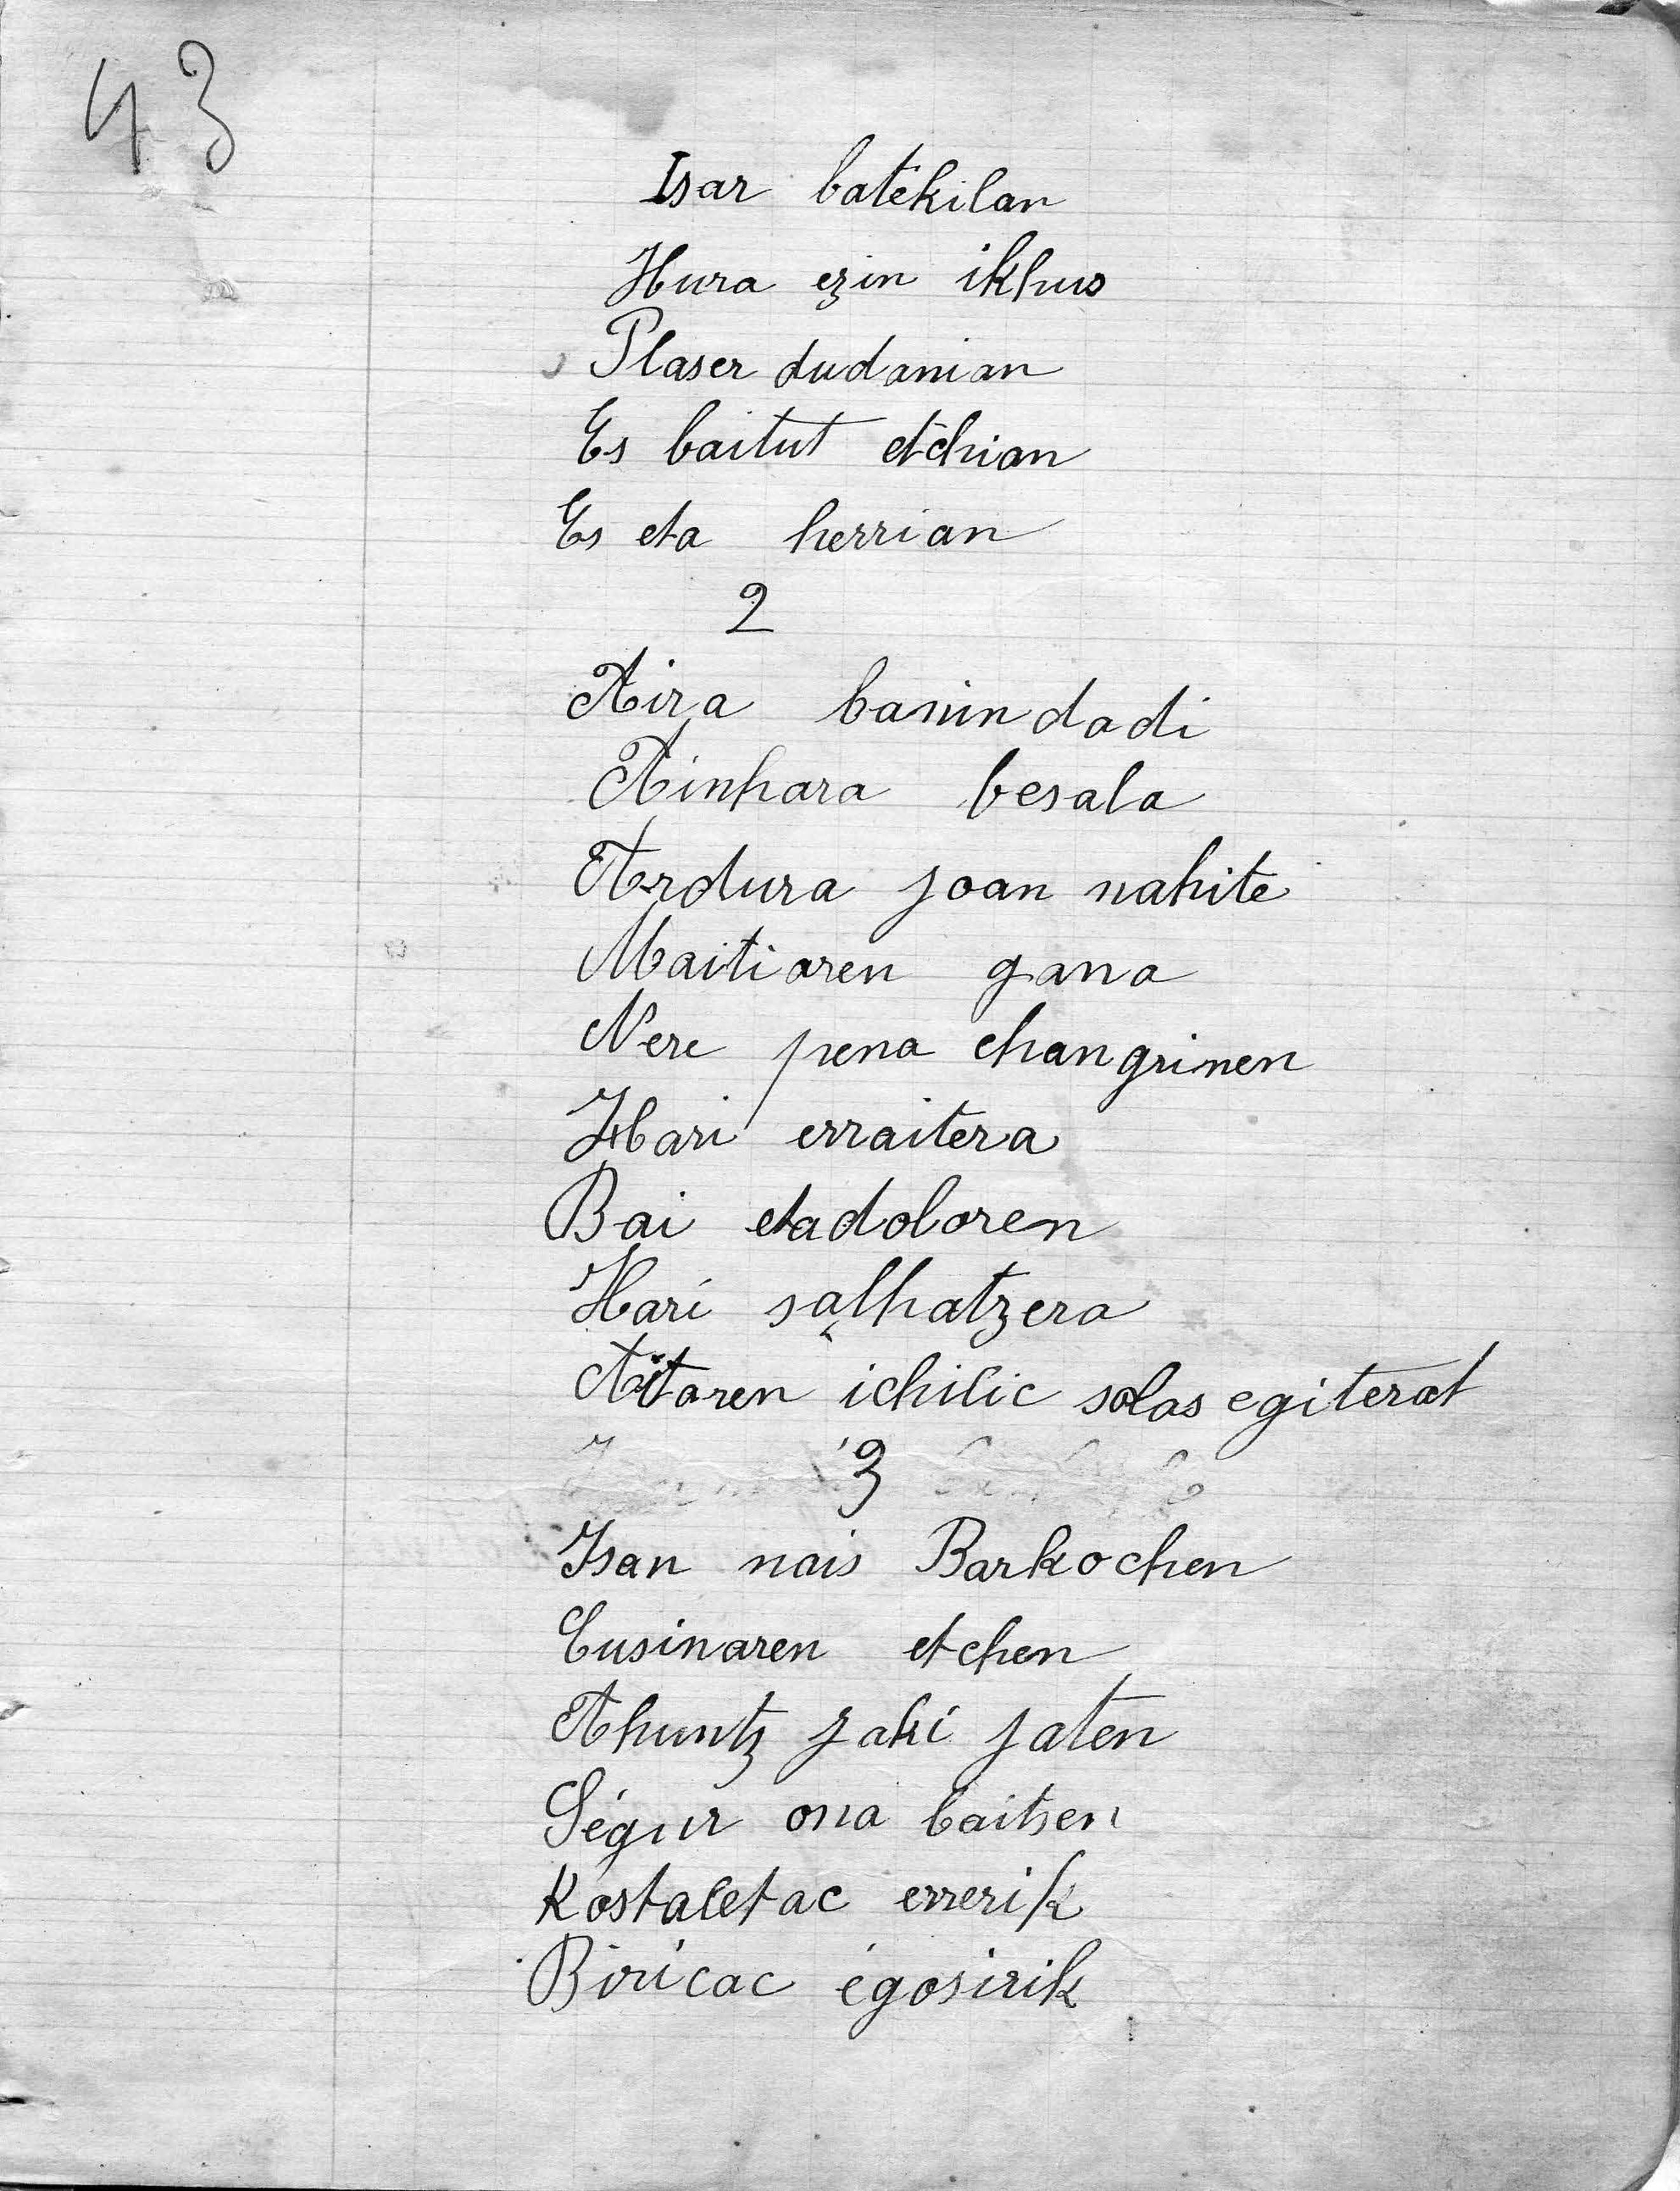 43
Isar batekilan
Hura ezin ikhus
Plaser dudanian
Es baitut etchian
Es eta herrian
2
Aira banindadi
Ainhara besala
Ardura joan nahite
Maitiaren gana
Nere pena changrinen
Hari erraitera
Bai eta doloren
Hari salhatzera
Aitaren ichilic solas egiterat
3
Isan nais Barkochen
Cusinaren etchen
Ahuntz zaki jaten
Ségur ona baitsen
Kostaletac errerik
Biricac égosirik